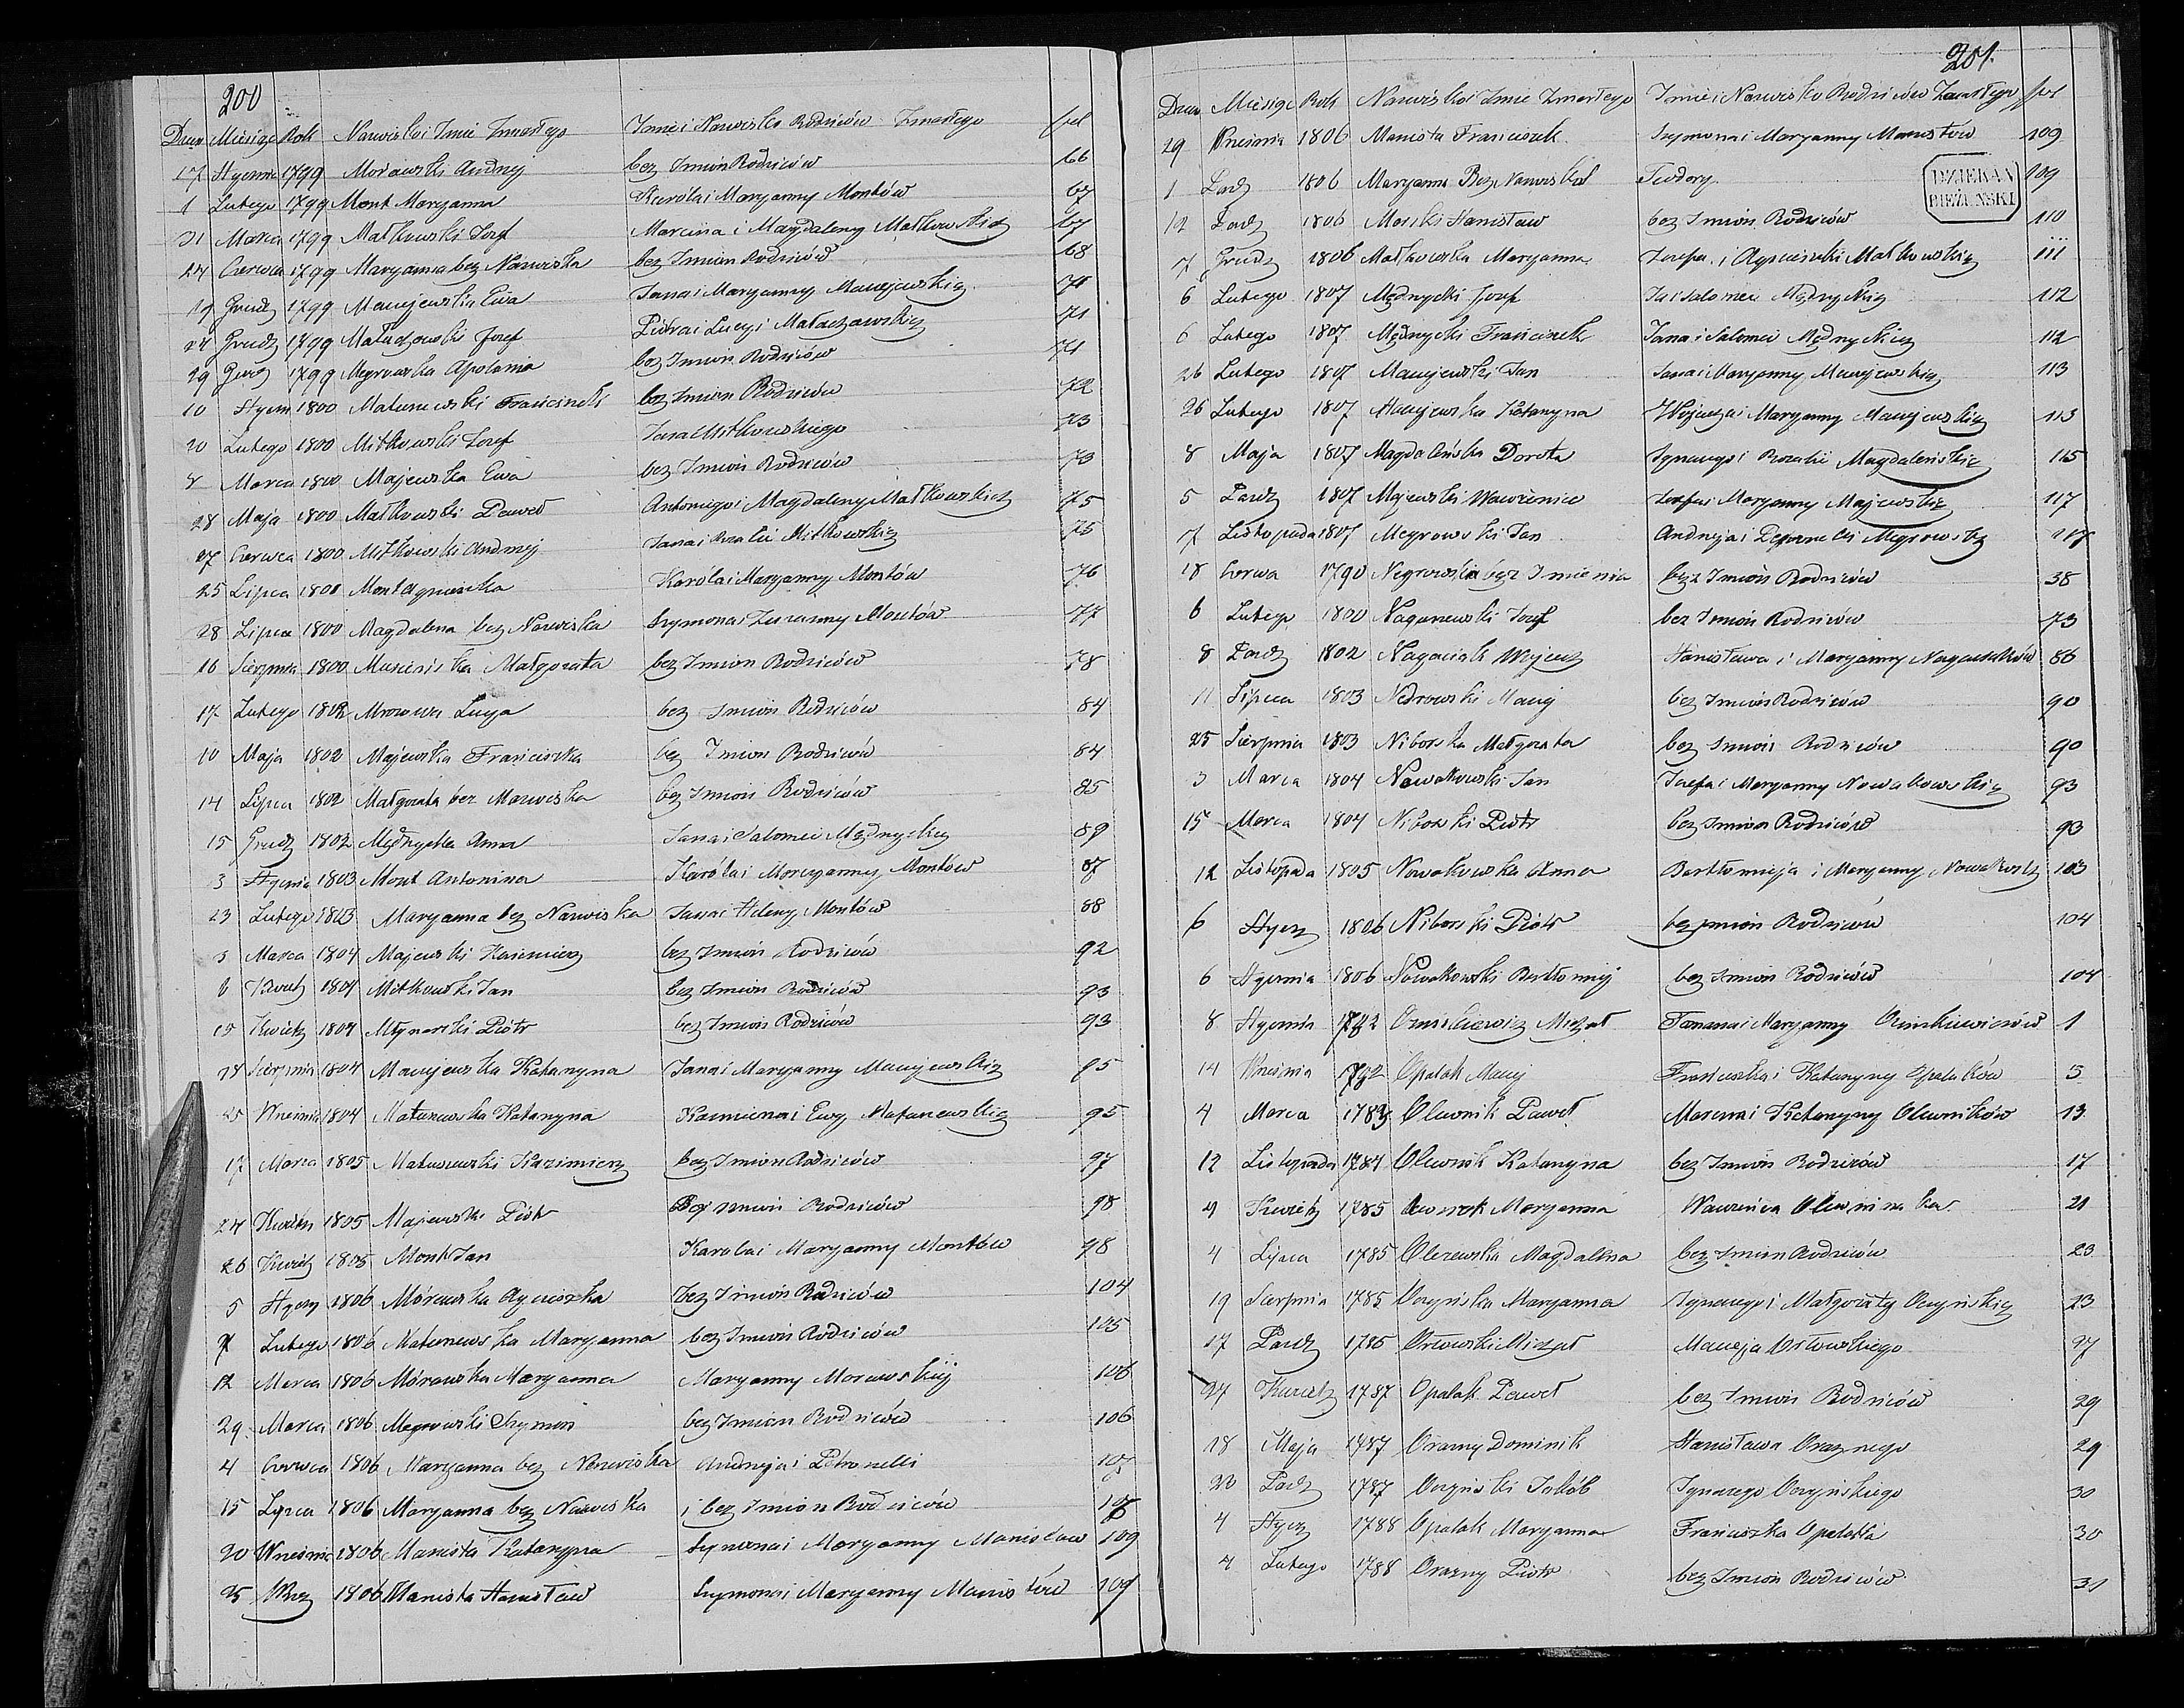 200
Dzień Miesiąc Rok Nazwisko i Imie Zmarłego Imie i Nazwisko Rodziców Zmarłego fol
17 Stycznia 1799 Morawski Andrzej bez Imion Rodziców 66
1 Lutego 1799 Mont Maryanna Karola i Maryanny Montów 67
21 Marca 1799 Małkowski Jozef Marcina i Magdaleny Małkowskich 67
24 Czerwca 1799 Maryanna bez Nazwiska bez Imion Rodziców 68
19 Grudz 1799 Maciejewska Ewa Jana i Maryanny Maciejewskich
24 Grudz 1799 Józef Piotra i Lucyi 71
29 Grudz 1799 Megrowska Apolonia bez Imion Rodziców 71
10 Stycz 1800 Matusiewski Franciszek bez Imion Rodziców 72
20 Lutego 1800 Mitkowski Jozef Jana Mitkowskiego 73
8 Marca 1800 Majewska Ewa bez Imion Rodziców 73
28 Maja 1800 Małkowski Paweł Antoniego i Magdaleny Małkowskich 75
27 Czerwca 1800 Mitkowski Andrzej Jana i Rozalii Mitkowskich 75
25 Lipca 1800 Mont Agnieszka Karola i Maryanny Montów 76
28 Lipca 1800 Magdalena bez Nazwiska Szymona i Zuzanny Montów 77
16 Sierpnia 1800 Małgorzata bez Imion Rodziców 78
17 Lutego 1802 Mrozowa Lucya bez Imion Rodziców 84
10 Maja 1802 Majewska Franciszka bez Imion Rodziców 84
14 Lipca 1802 Małgorzata bez Nazwiska bez Imion Rodziców 85
15 Grudz 1802 Mędrzycka Anna Jana i Salomei Mędrzyckich 89
3 Stycznia 1803 Mont Antonina Karóla i Maryanny Montów 87
23 Lutego 1803 Maryanna bez Nazwiska Jana i Heleny Montów 88
5 Marca 1804 Majewski Kazimierz bez Imion Rodziców 92
6 Kwietz 1804 Mitkowski Jan bez Imion Rodziców 93
15 Kwietz 1804 Młynarski Piotr bez Imion Rodziców 93
24 Sierpnia 1804 Maciejewska Katarzyna Jana i Maryanny Maciejewskich 95
25 Wrzesnia 1804 Matuszewska Katarzyna Kazmierza i Ewy Matuszewskich 95
17 Marca 1805 Matuszewski Kazimierz bez Imion Rodziców 97
24 Kwietn 1805 Majewski Piotr Bez Imion Rodziców 98
26 Kwietz 1805 Mont Jan Karola i Maryanny Montów 98
5 Stycz 1806 Mórawska Agnieszka bez Imion Rodziców 104
7 Lutego 1806 Matuszewska Maryanna bez Imion Rodziców 105
12 Marca 1806 Mórawska Maryanna Maryanny Morawskiey 106
29 Marca 1806 Megrowski Szymon bez Imion Rodziców 106
4 Czerwca 1806 Maryanna bez Nazwiska Andrzeja i Petronelli 107
15 Lipca 1806 Maryanna bez Nazwiska i bez Imion Rodziców
20 Wrzesnia 1806 Manista Katarzyna Szymona i Maryanny Manistow 109
25 Wrz 1806 Manista Stanisław Szymona i Maryanny Manistów 109
201.
Dzień Miesiąc Rok Nazwisko i Imie Zmarłego Imie i Nazwisko Rodziców Zmarłego fol
29 Wrzesnia 1806 Manista Franciszek Szymona i Maryanny Manistów 109
1 Paźdz 1806 Maryanna Bez Nazwiska Teodory 109
DZIEKAN
BIEŻUŃSKI
12 Paźdz 1806 Morski Stanisław bez Imion Rodziców 110
7 Grudz 1806 Małkowska Maryanna Jozefa i Agnieszki Małkowskich 111
6 Lutego 1807 Mędrzycki Jozef Ja i Salomei Mędrzyckich 112
6 Lutego 1807 Mędrzycki Franciszek Jana i Salomei Mędrzyckich 112
26 Lutego 1807 Maciejewski Jan Jana i Maryanny Maciejewskich 113
26 Lutego 1807 Maciejewska Katarzyna Wojciecha i Maryanny Maciejewskich 113
8 Maja 1807 Magdalińska Dorota Ignacego i Rozalii Magdaleńskich 115
5 Paźdz 1807 Majewski Wawrzeniec Jozefa i Maryanny Majewskich 117
7 Listopada 1807 Megrowski Jan Andrzeja i Petronelli Megrowskich 117
18 Czerwca 1790 Negrowska bez Imienia bez Imion Rodziców 38
6 Lutego 1800 Naganowski Jozef bez Imion Rodziców 73
8 Paźdz 1802 Nagaciak Wojciech Stanisława i Maryanny 86
11 Lipca 1803 Nedrowski Maciej bez Imion Rodziców 90
25 Sierpnia 1803 Niborska Małgorzata bez Imion Rodziców 90
3 Marca 1804 Nowakowski Jan Jozefa i Maryanny Nowakowskich 93
15 Marca 1804 Niborski Piotr bez Imion Rodziców 93
12 Listopada 1805 Nowakowska Anna Bartłomieja i Maryanny Nowakowskich 103
6 Stycz 1806 Niborski Piotr bez Imion Rodziców 104
6 Stycznia 1806 Nowakowski Bartłomiej bez Imion Rodziców 104
8 Stycznia 1782 Ozimkiewicz Michał Tomasza i Maryanny Ozimkiewiczów 1
14 Wrzesnia 1782 Opalak Maciej Franciszka i Katarzyny Opalaków 5
4 Marca 1783 Olewnik Paweł Marcina i Katarzyny Olewników 13
12 Listopada 1784 Olewnik Katarzyna bez Imion Rodziców 17
4 Kwietz 1785 Maryanna Wawrzeńca 21
4 Lipca 1785 Olszewska Magdalena bez Imion Rodziców 23
19 Sierpnia 1785 Oczyńska Maryanna Ignacego i Małgorzaty Oczyńskich 23
17 Paźdz 1786 Orłowski Michał Macieja Orłowskiego 27
27 Kwietz 1787 Opalak Paweł bez Imion Rodziców 29
18 Maja 1787 Orazny Dominik Stanisława Oraznego 29
20 Paźdz 1787 Oczyński Jakób Ignacego Oczyńskiego 30
4 Stycz 1788 Opalak Maryanna Franciszka Opalaka 30
4 Lutego 1788 Orazny Piotr bez Imion Rodziców 31